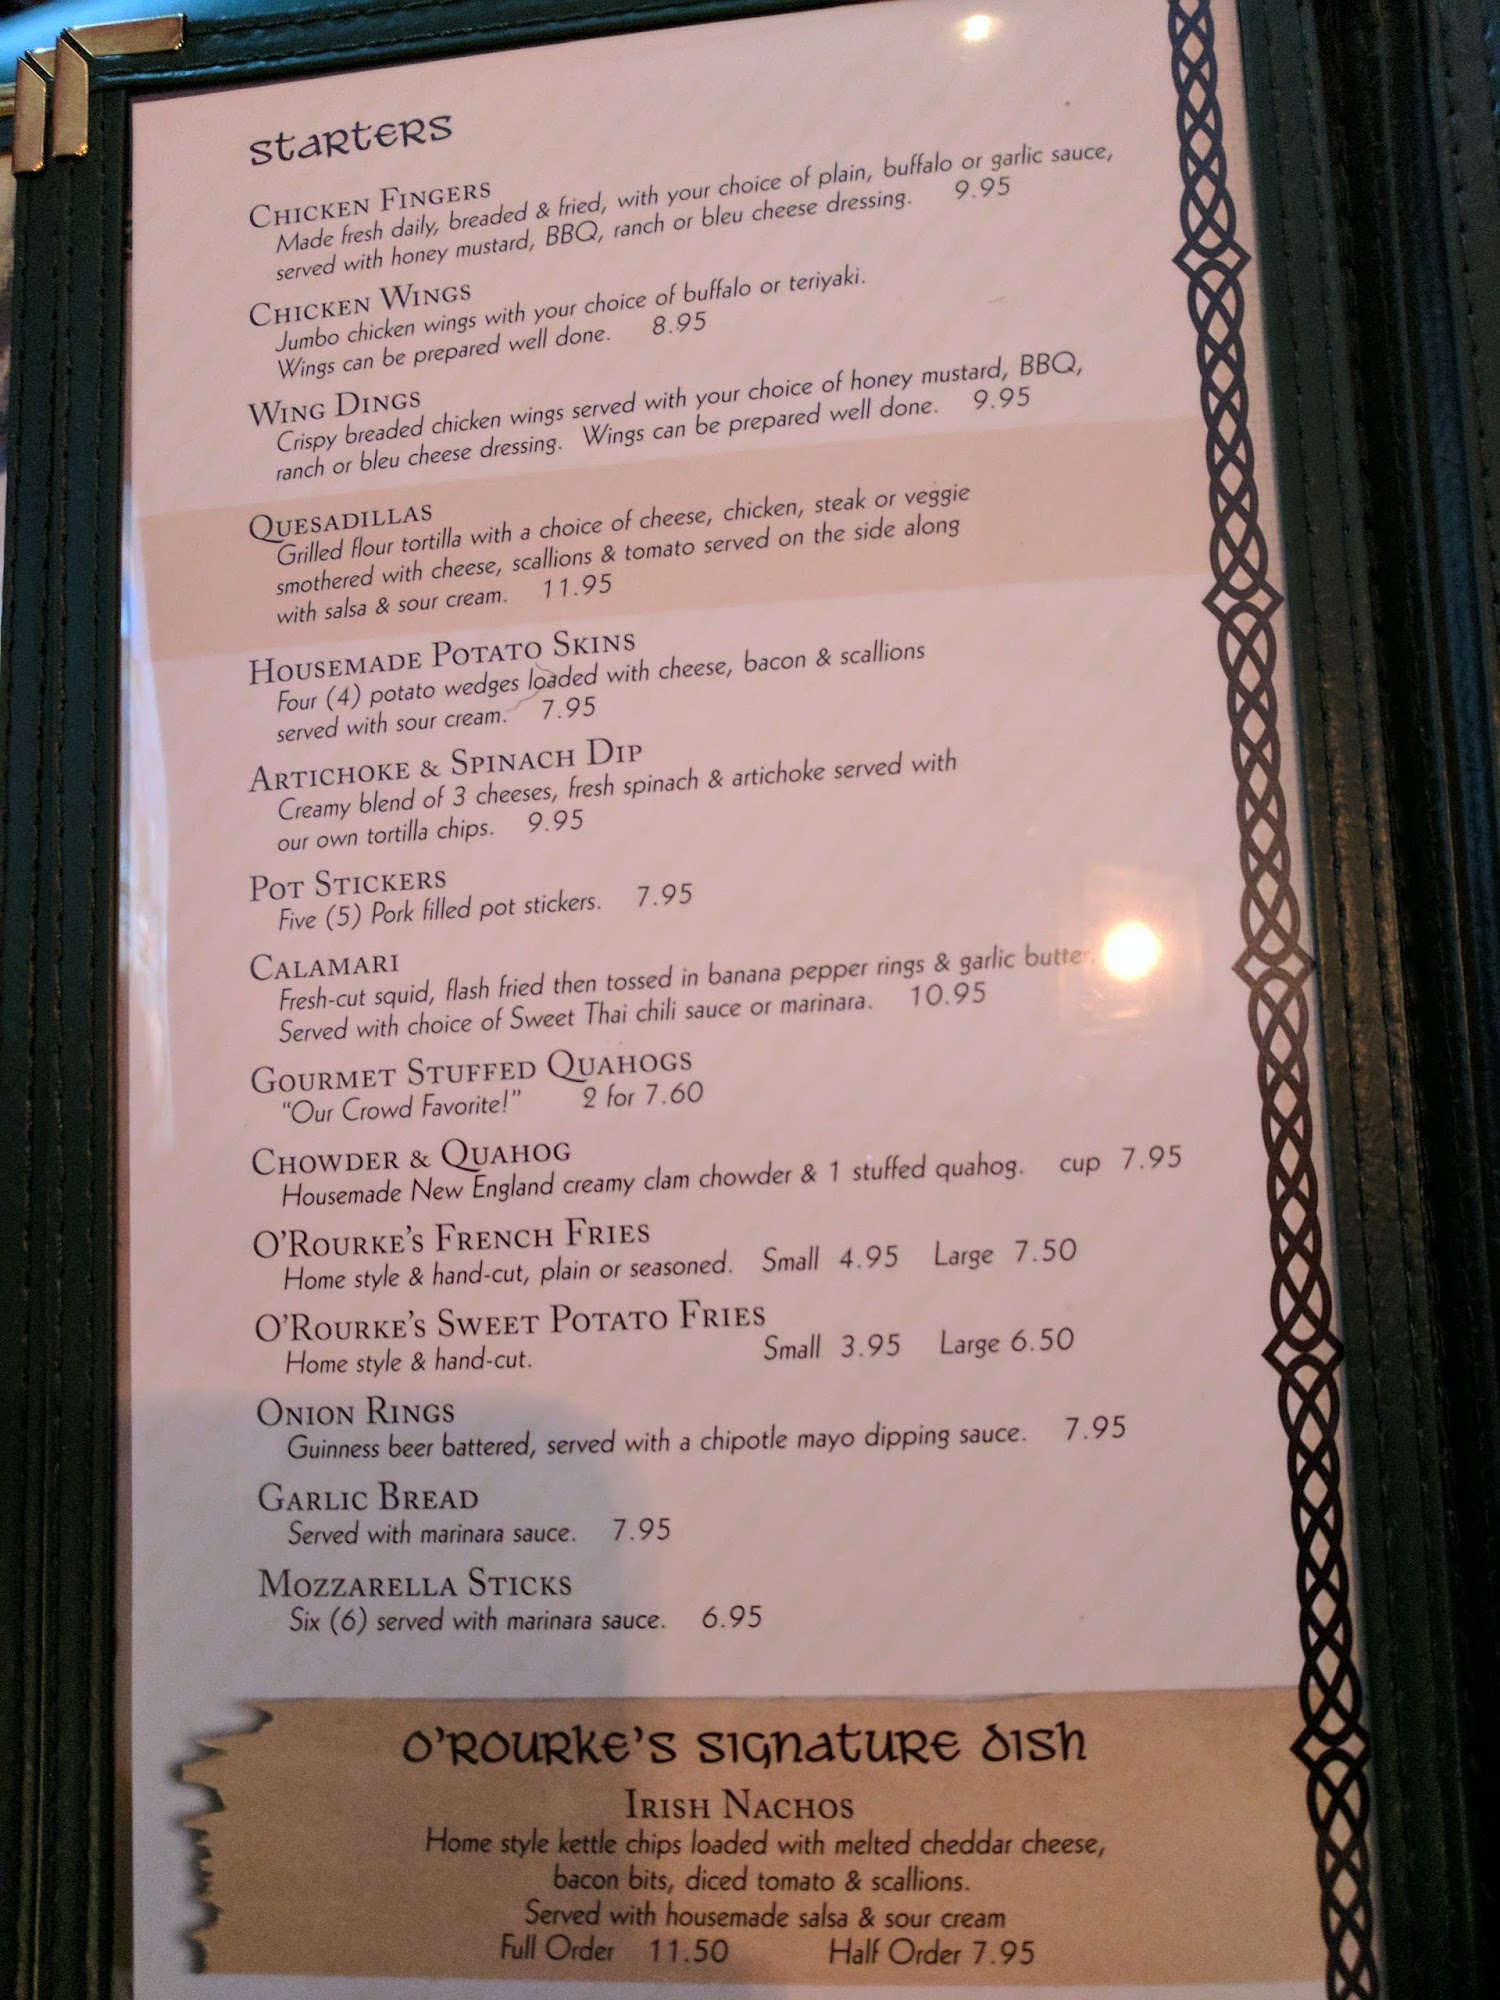 Starters
Chicken Fingers
Made fresh daily, breaded & fried, with your choice of plain, buffalo or garlic sauce,
served with honey mustard, BBQ, ranch or bleu cheese dressing. 9.95
Chicken Wings
Jumbo chicken wings with your choice of buffalo or teriyaki.
Wings can be prepared well done. 8.95
Wing Dings
Crispy breaded chicken wings served with your choice of honey mustard, BBQ,
ranch or bleu cheese dressing. Wings can be prepared well done. 9.95
Quesadillas
Grilled flour tortilla with a choice of cheese, chicken, steak or veggie
smothered with cheese, scallions & tomato served on the side along
with salsa & sour cream. 11.95
Housemade Potato Skins
Four (4) potato wedges loaded with cheese, bacon & scallions
served with sour cream. 7.95
Artichoke & Spinach Dip
Creamy blend of 3 cheeses, fresh spinach & artichoke served with
our own tortilla chips. 9.95
Pot Stickers
Five (5) Pork filled pot stickers. 7.95
Calamari
Fresh-cut squid, flash fried then tossed in banana pepper rings & garlic butter.
Served with choice of Sweet Thai chili sauce or marinara. 10.95
Gourmet Stuffed Quahogs
"Our Crowd Favorite!" 2 for 7.60
Chowder & Quahog
Housemade New England creamy clam chowder & 1 stuffed quahog. cup 7.95
O'Rourke's French Fries
Home style & hand-cut, plain or seasoned. Small 4.95 Large 7.50
O'Rourke's Sweet Potato Fries
Home style & hand-cut. Small 3.95 Large 6.50
Onion Rings
Guinness beer battered, served with a chipotle mayo dipping sauce. 7.95
Garlic Bread
Served with marinara sauce. 7.95
Mozzarella Sticks
Six (6) served with marinara sauce. 6.95
O'Rourke's Signature Dish
Irish Nachos
Home style kettle chips loaded with melted cheddar cheese,
bacon bits, diced tomato & scallions.
Served with housemade salsa & sour cream
Full Order 11.50 Half Order 7.95